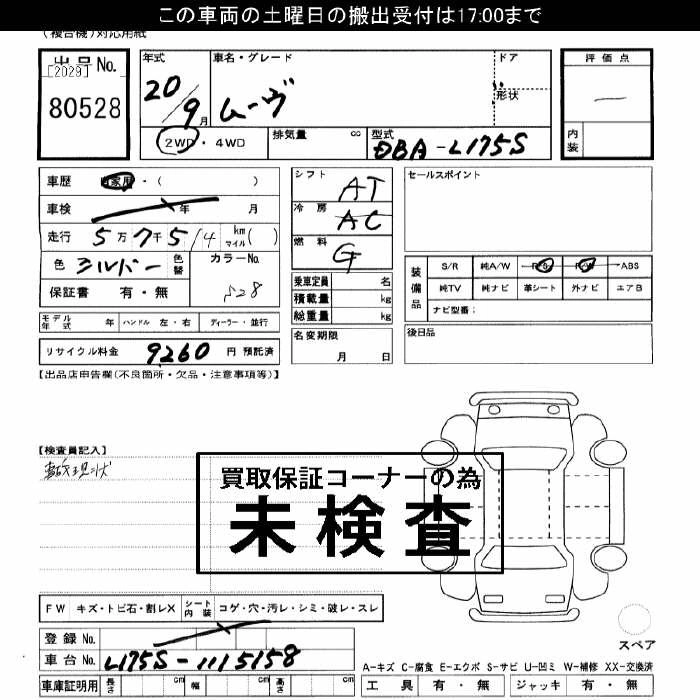 この車両の土曜日の搬出受付は17:00まで
(複合機)対応用紙
出品No.
[2029]
80528
年式
20/9月
車名・グレード
ムーヴ
ドア
形状
評価点
内装
2WD・4WD
排気量 cc
型式 DBA-L175S
車歴 自家用・( )
車検 年 月
走行 5万7千5/4 km マイル( )
色 シルバー 色替
カラーNo. S28
保証書 有・無
シフト AT
冷房 AC
燃料 G
乗車定員 名
積載量 kg
総重量 kg
セールスポイント
装備品
S/R 純A/W P/S P/W ABS
純TV 純ナビ 革シート 外ナビ エアB
ナビ型番:
モデル年式 年 ハンドル 左・右 ディーラー・並行
名変期限 月 日
後日品
リサイクル料金 9260 円 預託済
【出品店申告欄(不良箇所・欠品・注意事項等)】
【検査員記入】
買取保証コーナーの為
未検査
FW キズ・トビ石・割レX シート内装 コゲ・穴・汚レ・シミ・破レ・スレ
登録No.
車台No. L175S-1115158
スペア
A-キズ C-腐食 E-エクボ S-サビ U-凹ミ W-補修 XX-交換済
車庫証明用 長さ cm 幅 cm 高さ cm
工具 有・無 ジャッキ 有・無